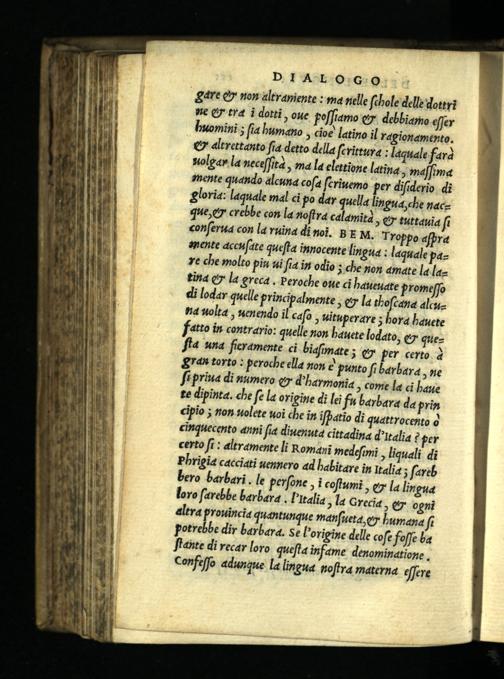 DIALOGO
gare & non altramente : ma nelle schole delle dottri
ne & tra i dotti, oue possiamo & debbiamo esser
huomini ; sia humano, cioè latino il ragionamento.
& altrettanto sia detto della scrittura : laquale farà
uolgar la necessità, ma la elettione latina, massima
mente quando alcuna cosa scriuemo per disiderio di
gloria: laquale mal ci po dar quella lingua, che nac=
que, & crebbe con la nostra calamità, & tuttauia si
conserua con la ruina di noi. BEM. Troppo aspra
mente accusate questa innocente lingua : laquale pa=
re che molto piu ui sia in odio ; che non amate la la=
tina & la greca . Peroche oue ci haueuate promesso
di lodar quelle principalmente, & la thoscana alcu=
na uolta, uenendo il caso, uituperare ; hora hauete
fatto in contrario: quelle non hauete lodato, & que=
sta una fieramente ci biasimate ; & per certo à
gran torto : peroche ella non è punto si barbara, ne
si priua di numero & d'harmonia, come la ci haue
te dipinta. che se la origine di lei fu barbara da prin
cipio ; non uolete uoi che in ispatio di quattrocento ò
cinquecento anni sia diuenuta cittadina d'Italia ? per
certo si : altramente li Romani medesimi, liquali di
Phrigia cacciati uennero ad habitare in Italia ; sareb
bero barbari. le persone, i costumi, & la lingua
loro sarebbe barbara . l'Italia, la Grecia, & ogni
altra prouincia quantunque mansueta, & humana si
potrebbe dir barbara. Se l'origine delle cose fosse ba
stante di recar loro questa infame denominatione.
Confesso adunque la lingua nostra materna essere